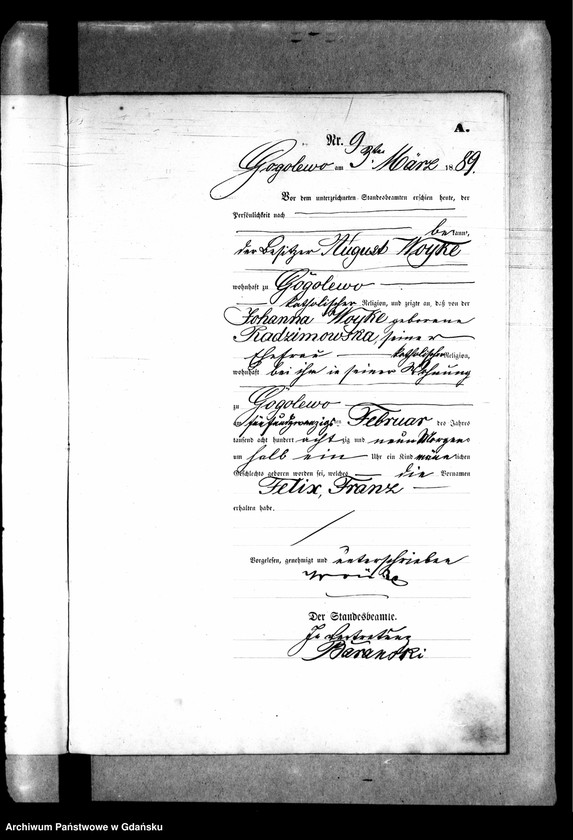 A.
Nr. 9
Gogolewo am 3ten März 1889.
Vor dem unterzeichneten Standesbeamten erschien heute, der
Persönlichkeit nach
bekannt,
der Besitzer August Woyke
wohnhaft zu Gogolewo
katholischer Religion, und zeigte an, daß von der
Johanna Woyke geborene
Radzimowska, seiner
Ehefrau katholischer Religion,
wohnhaft bei ihm in seiner Wohnung
zu Gogolewo
am fünfundzwanzigsten Februar des Jahres
tausend acht hundert achtzig und neun Morgens
um halb ein Uhr ein Kind männlichen
Geschlechts geboren worden sei, welches die Vornamen
Felix, Franz
erhalten habe.
Vorgelesen, genehmigt und unterschrieben
Der Standesbeamte.
In Vertretung
Baranski
Archiwum Państwowe w Gdańsku